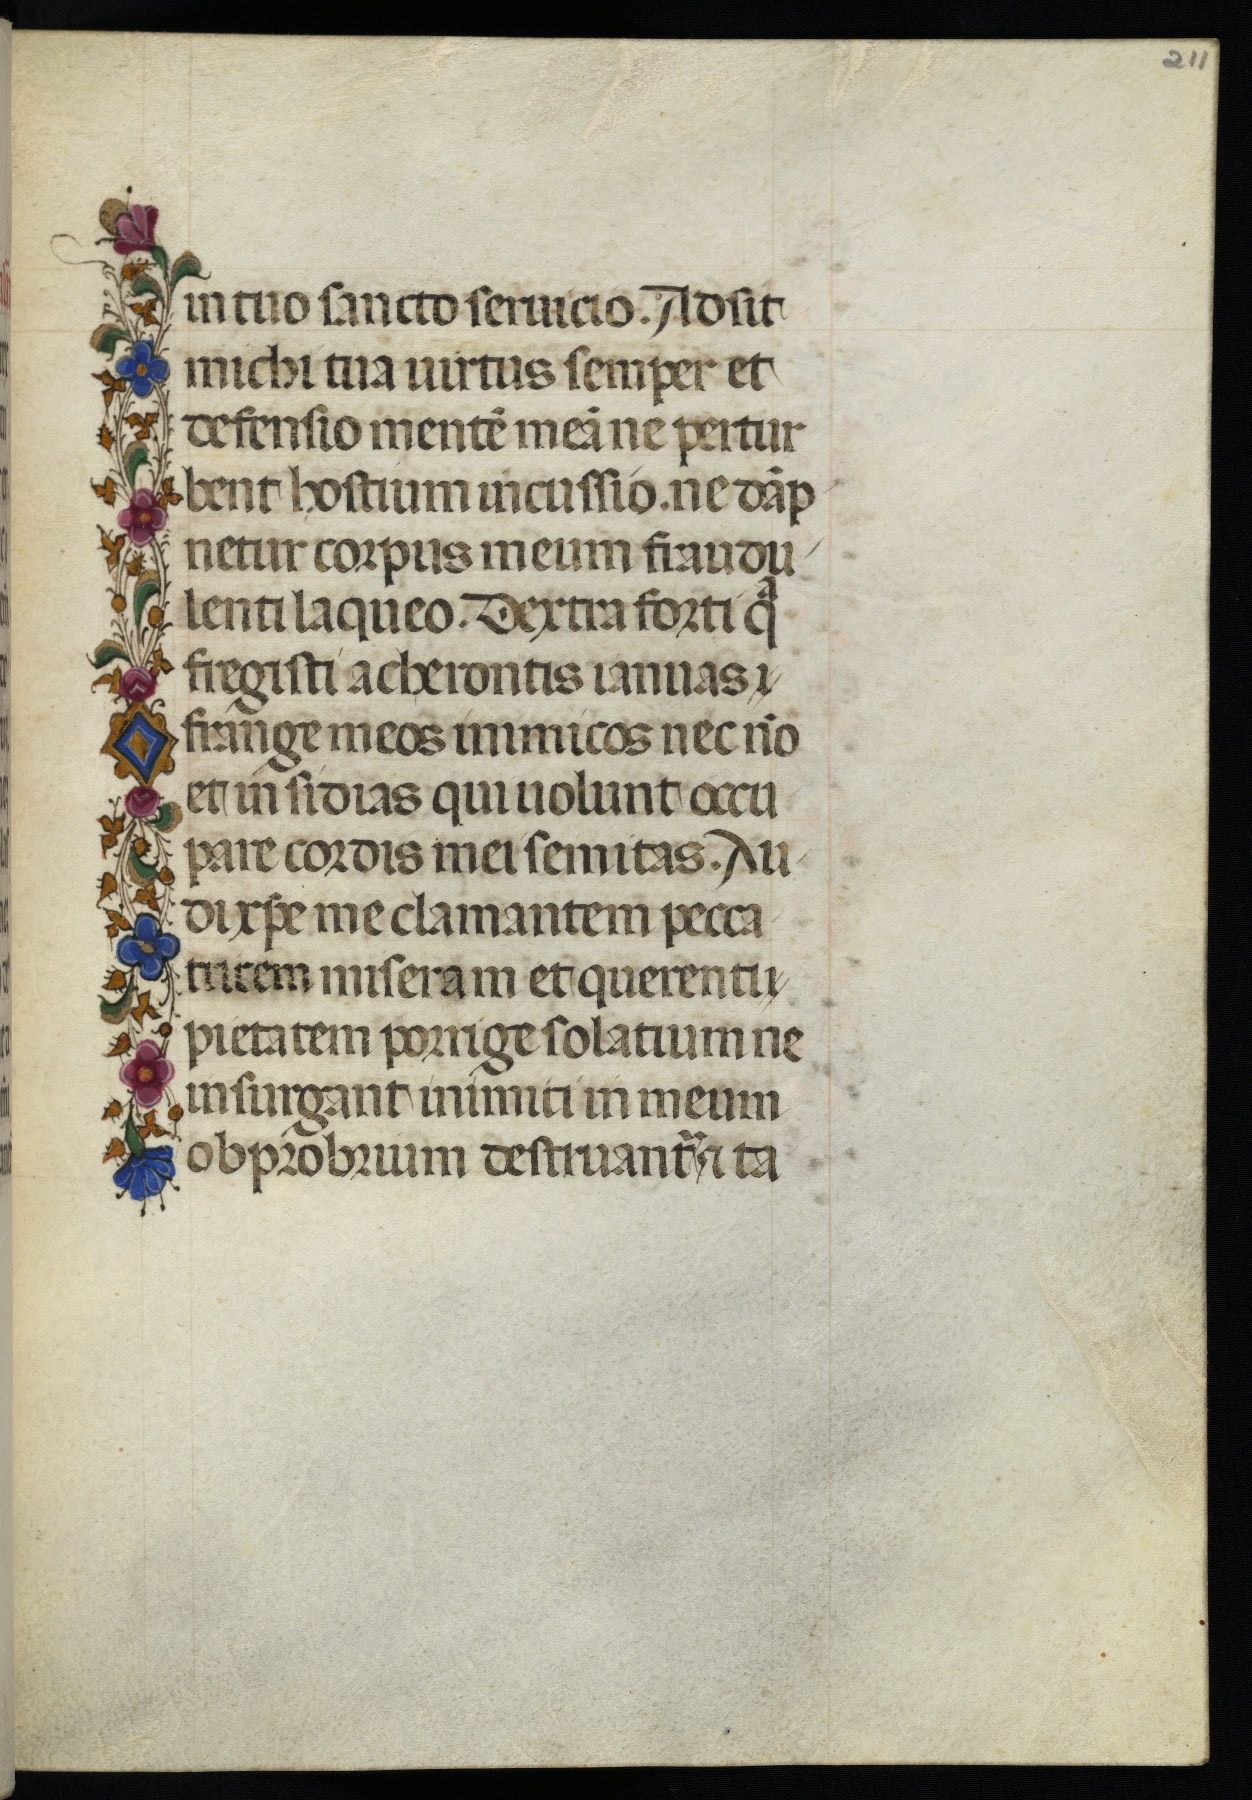 211
in tuo sancto seruicio. Adsit
michi tua uirtus semper et
defensio mentē meā ne pertur
bent hostium incussio. ne dāp
netur corpus meum fraudu
lenti laqueo. Dextra forti qͣ
fregisti acherontis ianuas
frange meos inimicos nec nō
et insidias qui uolunt occu
pare cordis mei semitas. Au
di xp̄e me clamantem pecca
tricem miseram et querentē
pietatem porrige solatium ne
insurgant inimici in meum
obprobrium destruant̄ ita